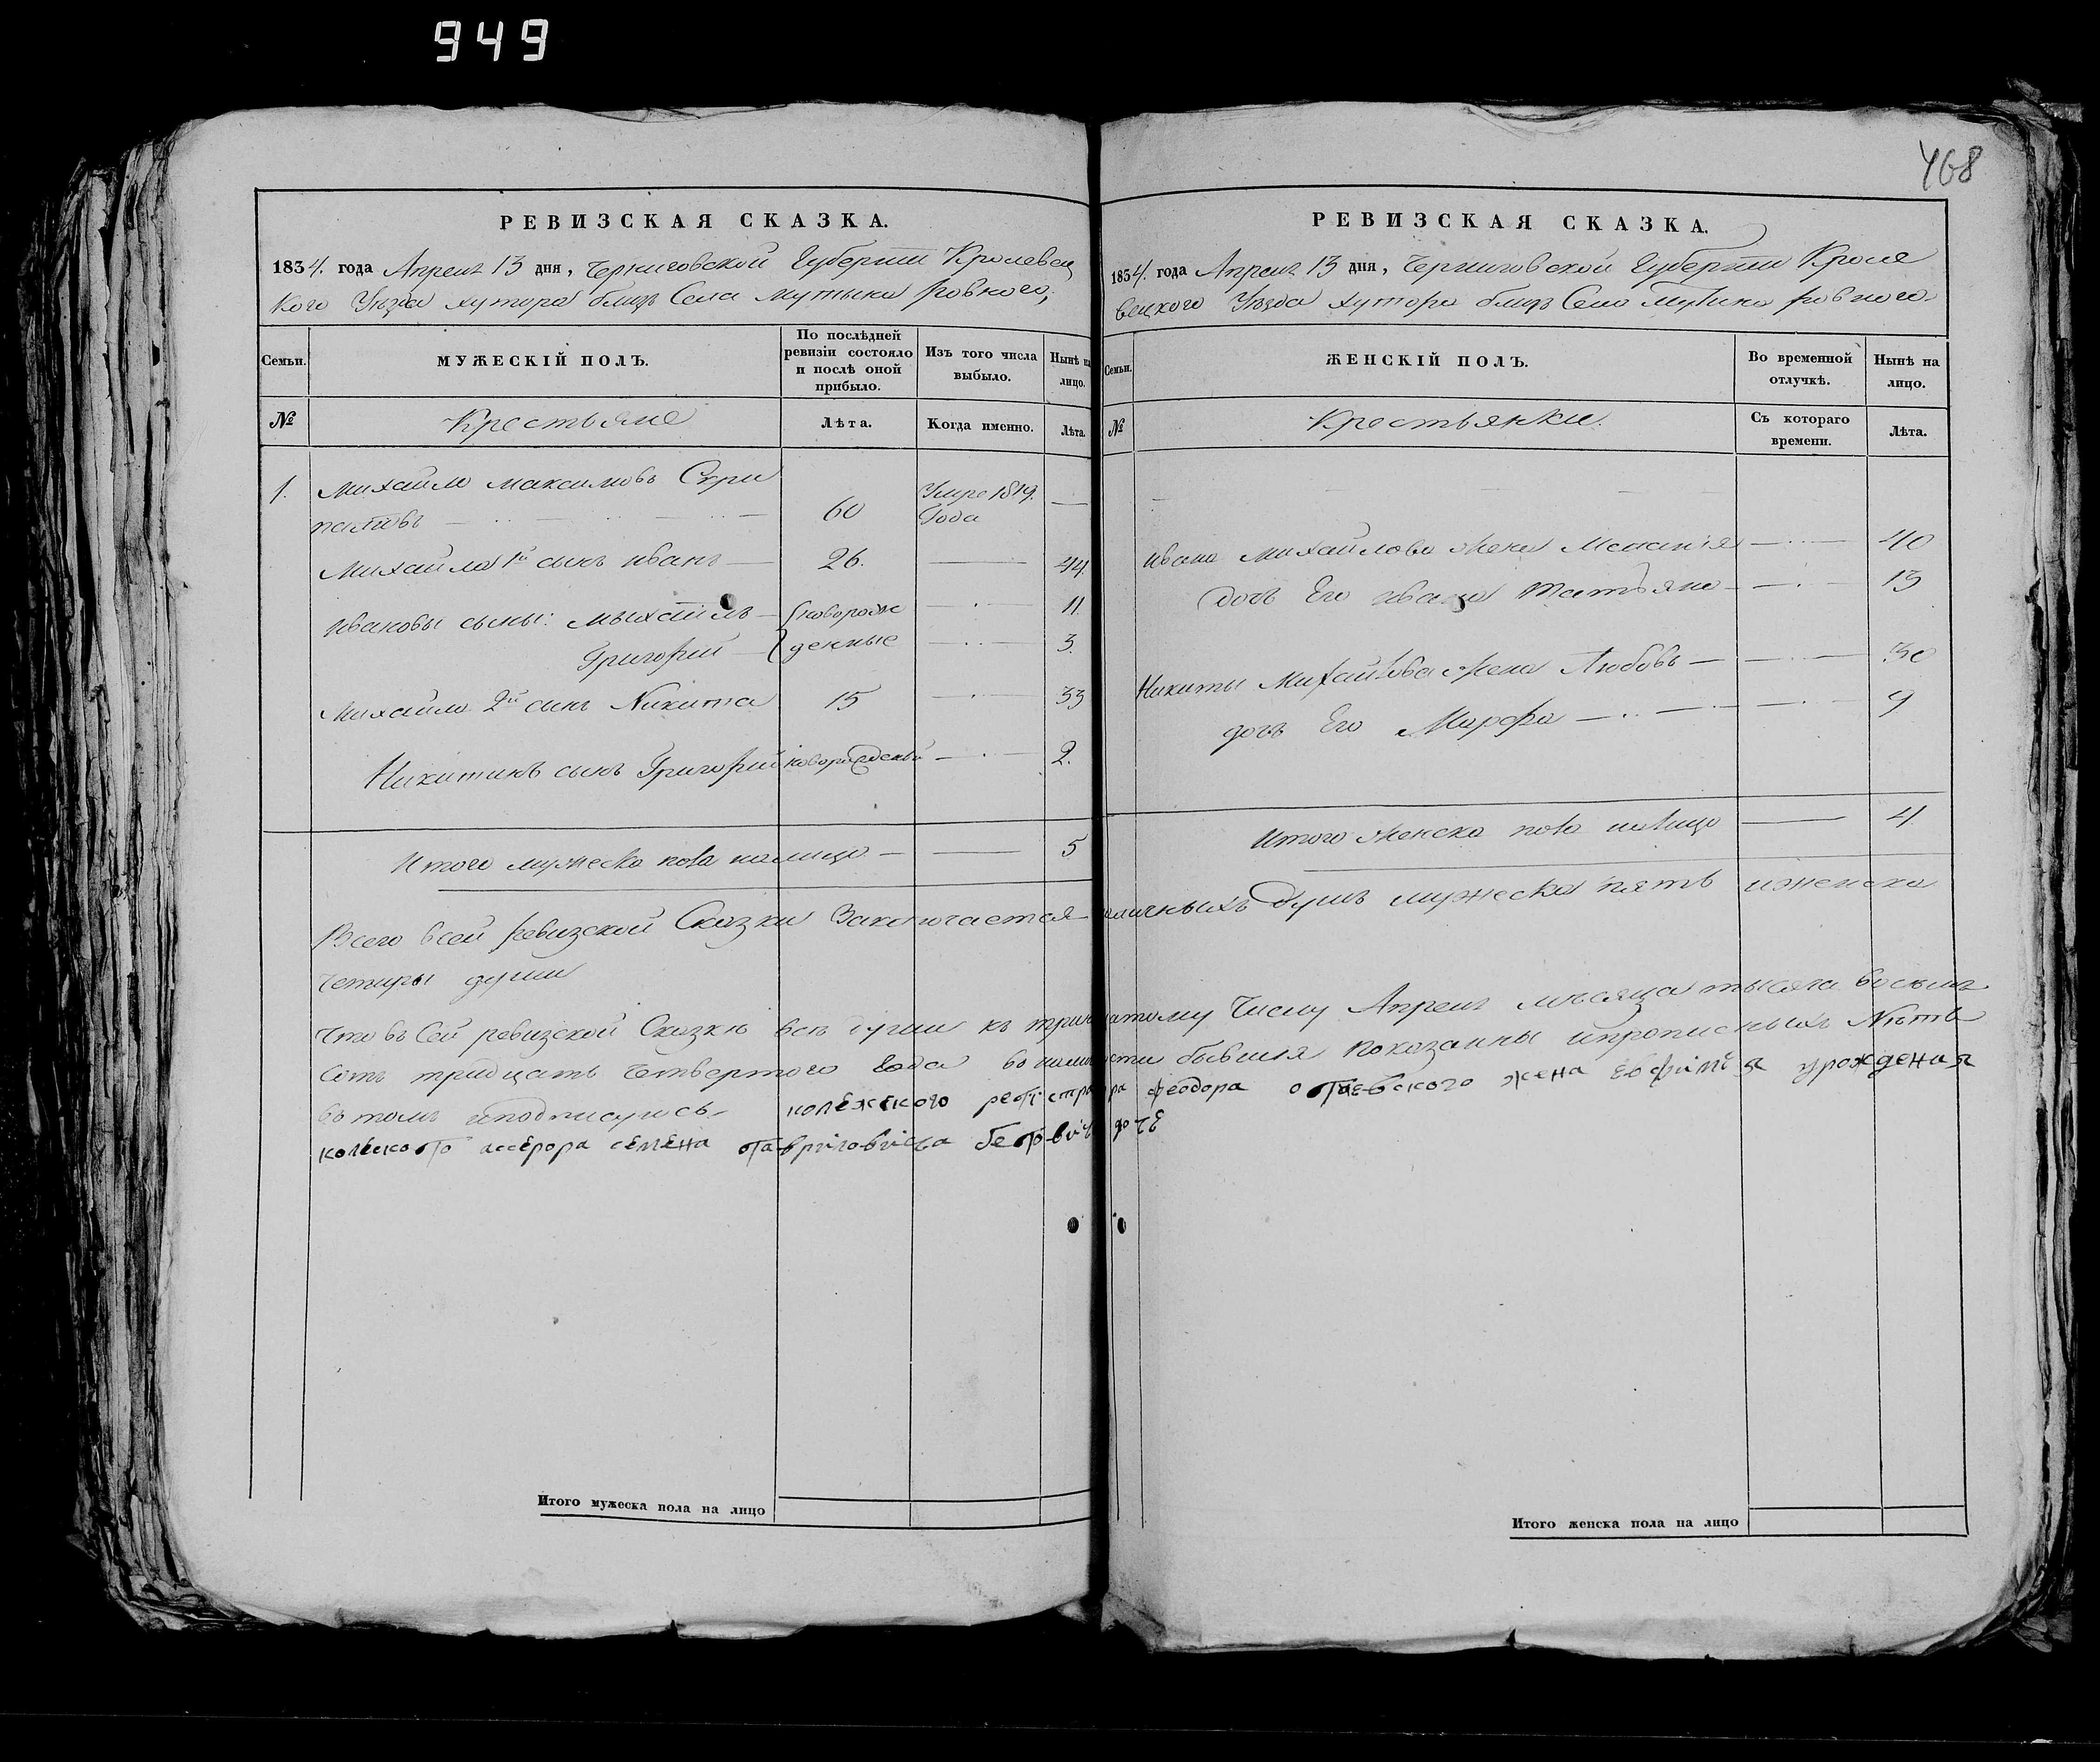 949
468
РЕВИЗСКАЯ СКАЗКА.
1834. года Апреля 13 дня, Черниговской Губернии Кролевец
кого Уезда хутора близ Села Мутына Ровного,
Семьи.
МУЖЕСКІЙ ПОЛЪ.
По послѣдней ревизіи состояло и послѣ оной прибыло.
Изъ того числа выбыло.
Нынѣ на лицо.
№
Крестьяне
Лѣта.
Когда именно.
Лѣта.
1. Михайло Максимовъ
60 Умре 1819. Года —
Михайла 1й сынъ Иванъ — 26. — 44.
Ивановы сыны: Мыхаилъ — новорож — 11.
Григорий — денные — 3.
Михайла 2й сынъ Никита 15 — 33
Никитинъ сынъ Григорий новорожденый — 2.
Итого мужеска пола налицо — — 5
Всего в сей ревизской Сказки Заключается
четыры души
Что въ Сей ревизской Сказкѣ всѣ души къ
сотъ тридцать Четвертого Года
въ томъ и подписуюсь колежского
семена гавриловича дочѣ
Итого мужеска пола на лицо
РЕВИЗСКАЯ СКАЗКА.
1834. года Апреля 13 дня, Черниговской Губернии Кроле
вецкого Уезда хутора близ Села Мутина Ровного
Семьи.
ЖЕНСКІЙ ПОЛЪ.
Во временной отлучкѣ.
Нынѣ на лицо.
№
Крестьянки.
Съ котораго времени.
Лѣта.
Ивана Михайлова жена Меланія — 40
дочь Его Ивана Татьяна — 13
Никиты Михайлова жена Любовь — 30
дочь Его Марфа — 9
Итого женска пола налицо — 4
наличныхъ душъ мужеска пять и женска
Числу Апреля мѣсяца тысяча восемъ
бывшія показанны и прописныхъ Нѣтъ
феодора жена евфимѣя урожденая
Итого женска пола на лицо